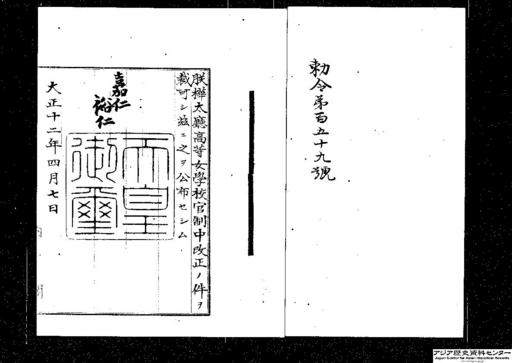 勅令第百五十九號
朕樺太廳高等女學校官制中改正ノ件ヲ
裁可シ茲ニ之ヲ公布セシム
嘉仁
裕仁
天皇
御璽
大正十二年四月七日
アジア歴史資料センター
Japan Center for Asian Historical Records